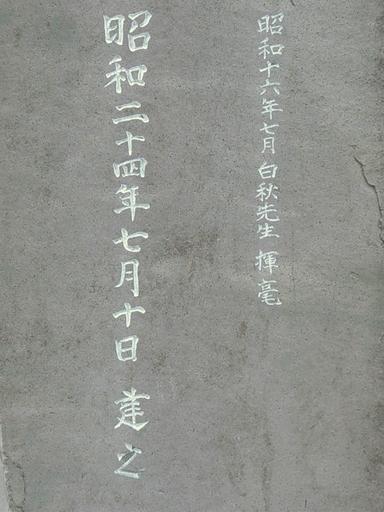 昭和十六年七月白秋先生 揮毫
昭和二十四年七月十日 建之